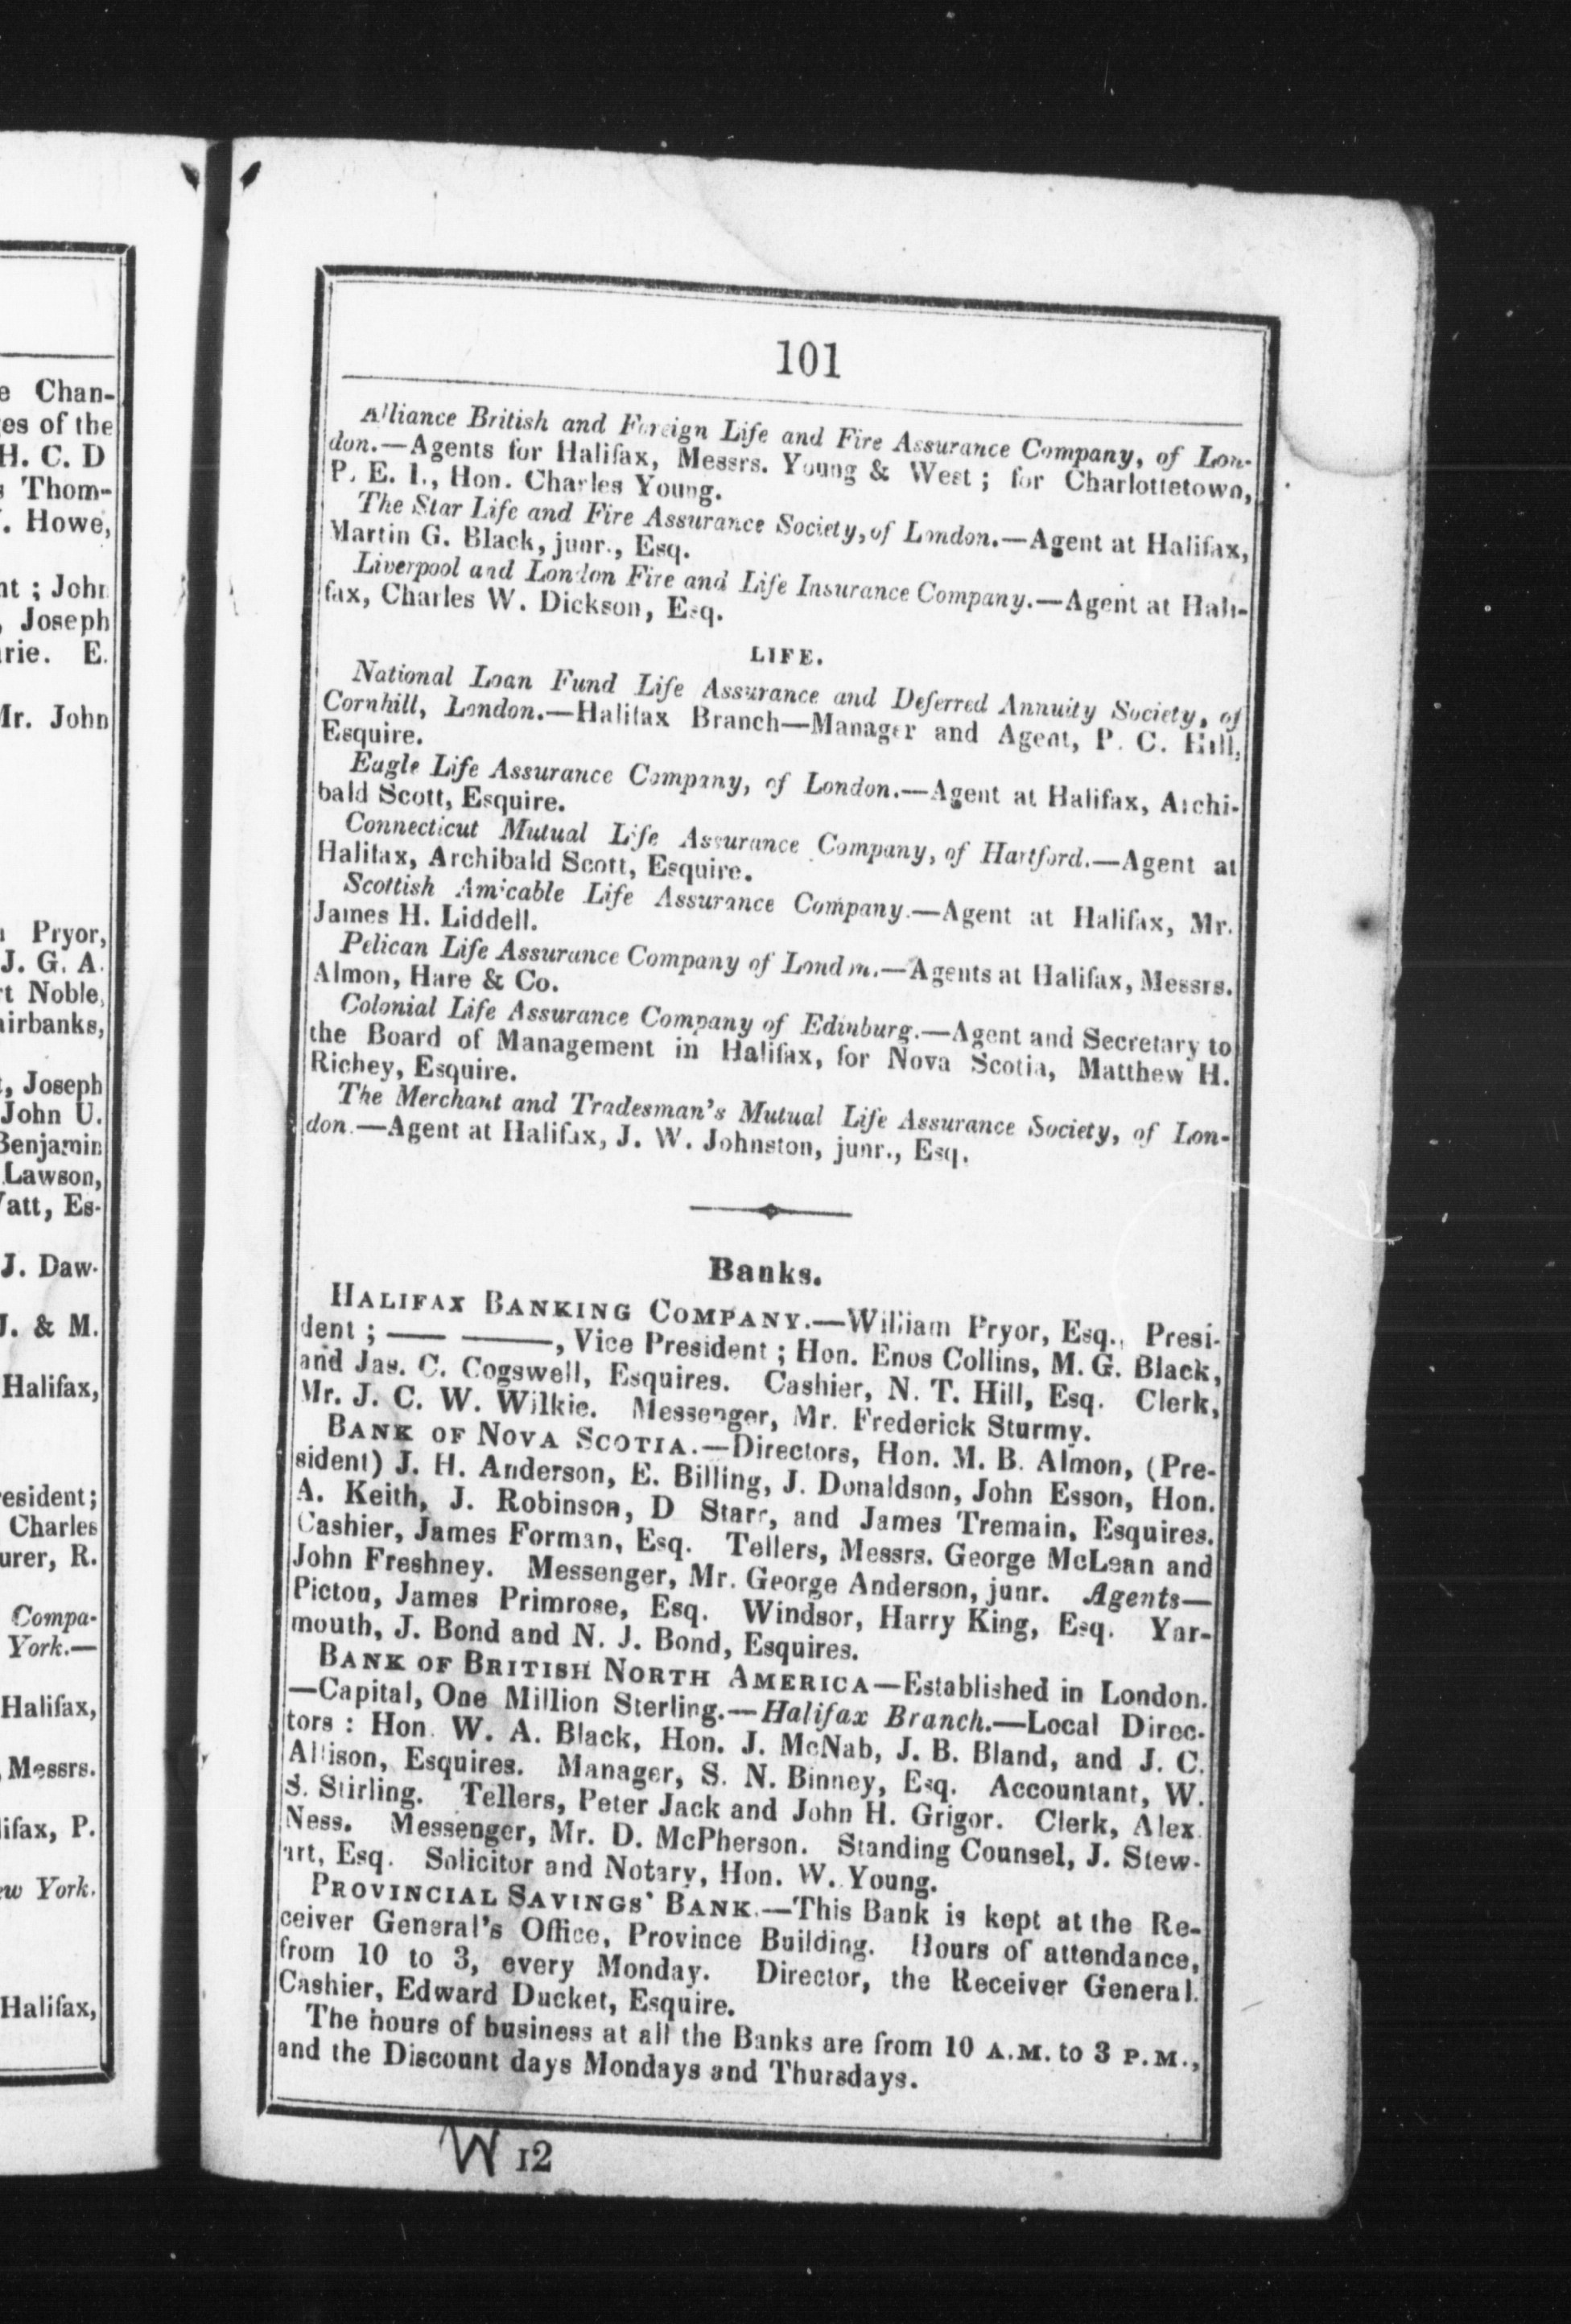 e Chan-
es of the
H. C. D
s Thom-
. Howe,
nt ; John
, Joseph
rie. E.
Mr. John
Pryor,
J. G. A.
rt Noble,
airbanks,
, Joseph
John U.
Benjamin
Lawson,
att, Es-
J. Daw-
J. & M.
Halifax,
esident;
Charles
urer, R.
Compa-
York.—
Halifax,
, Messrs.
lifax, P.
ew York.
Halifax,
101
Alliance British and Foreign Life and Fire Assurance Company, of Lon-
don.—Agents for Halifax, Messrs. Young & West ; for Charlottetown,
P. E. I., Hon. Charles Young.
The Star Life and Fire Assurance Society, of London.—Agent at Halifax,
Martin G. Black, junr., Esq.
Liverpool and London Fire and Life Insurance Company.—Agent at Hali-
fax, Charles W. Dickson, Esq.
LIFE.
National Loan Fund Life Assurance and Deferred Annuity Society, of
Cornhill, London.—Halifax Branch—Manager and Agent, P. C. Hill,
Esquire.
Eagle Life Assurance Company, of London.—Agent at Halifax, Archi-
bald Scott, Esquire.
Connecticut Mutual Life Assurance Company, of Hartford.—Agent at
Halifax, Archibald Scott, Esquire.
Scottish Amicable Life Assurance Company.—Agent at Halifax, Mr.
James H. Liddell.
Pelican Life Assurance Company of London.—Agents at Halifax, Messrs.
Almon, Hare & Co.
Colonial Life Assurance Company of Edinburg.—Agent and Secretary to
the Board of Management in Halifax, for Nova Scotia, Matthew H.
Richey, Esquire.
The Merchant and Tradesman's Mutual Life Assurance Society, of Lon-
don.—Agent at Halifax, J. W. Johnston, junr., Esq.
Banks.
HALIFAX BANKING COMPANY.—William Pryor, Esq., Presi-
dent ; —— ———, Vice President ; Hon. Enos Collins, M. G. Black,
and Jas. C. Cogswell, Esquires. Cashier, N. T. Hill, Esq. Clerk,
Mr. J. C. W. Wilkie. Messenger, Mr. Frederick Sturmy.
BANK OF NOVA SCOTIA.—Directors, Hon. M. B. Almon, (Pre-
sident) J. H. Anderson, E. Billing, J. Donaldson, John Esson, Hon.
A. Keith, J. Robinson, D Starr, and James Tremain, Esquires.
Cashier, James Forman, Esq. Tellers, Messrs. George McLean and
John Freshney. Messenger, Mr. George Anderson, junr. Agents—
Pictou, James Primrose, Esq. Windsor, Harry King, Esq. Yar-
mouth, J. Bond and N. J. Bond, Esquires.
BANK OF BRITISH NORTH AMERICA—Established in London.
—Capital, One Million Sterling.—Halifax Branch.—Local Direc-
tors : Hon. W. A. Black, Hon. J. McNab, J. B. Bland, and J. C.
Allison, Esquires. Manager, S. N. Binney, Esq. Accountant, W.
S. Stirling. Tellers, Peter Jack and John H. Grigor. Clerk, Alex.
Ness. Messenger, Mr. D. McPherson. Standing Counsel, J. Stew-
art, Esq. Solicitor and Notary, Hon. W. Young.
PROVINCIAL SAVINGS' BANK.—This Bank is kept at the Re-
ceiver General's Office, Province Building. Hours of attendance,
from 10 to 3, every Monday. Director, the Receiver General.
Cashier, Edward Ducket, Esquire.
The hours of business at all the Banks are from 10 A.M. to 3 P.M.,
and the Discount days Mondays and Thursdays.
W 12